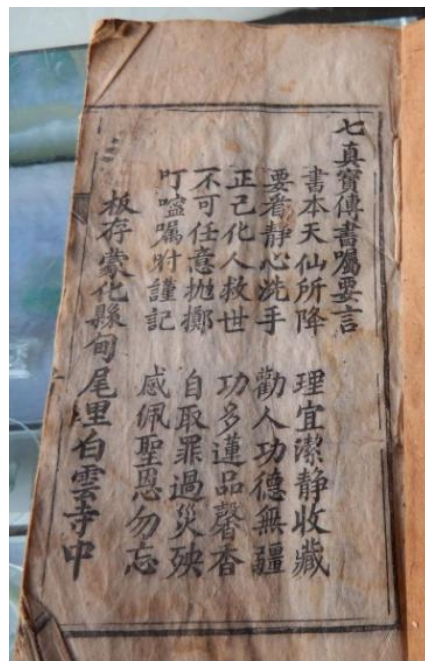 七真寶傳書囑要言
書本天仙所降　理宜潔靜收藏
要看靜心洗手　勸人功德無疆
正己化人救世　功多蓮品馨香
不可任意拋擲　自取罪過災殃
叮嚀囑咐謹記　感佩聖恩勿忘
板存蒙化縣甸尾里白雲寺中